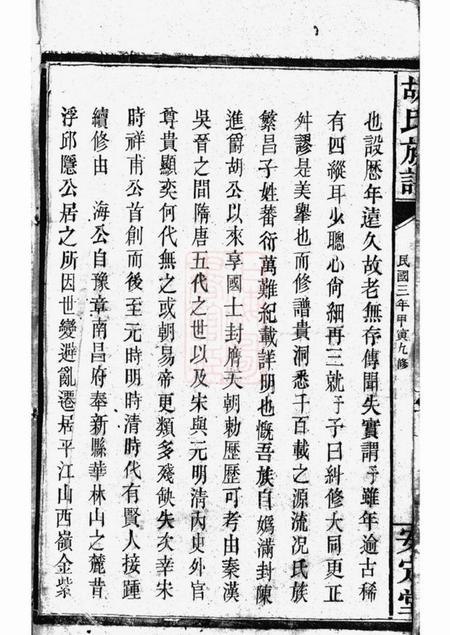 胡氏族譜
民國三年甲寅九修
安定堂
也設歷年遠久故老無存傳聞失實謂予雖年逾古稀
有四縱耳少聰心尚細再三就予予曰糾修大同更正
舛謬是美舉也而修譜貴洞悉千百載之源流況氏族
繁昌子姓蕃衍萬難紀載詳明也慨吾族自媯滿封陳
進爵胡公以來享國土封膺天朝勅歷歷可考由秦漢
吳晉之間隋唐五代之世以及宋與元明清內史外官
尊貴顯奕何代無之或朝易帝更類多殘缺失次幸宋
時祥甫公首創而後至元時明時清時代有賢人接踵
續修由 海公自豫章南昌府奉新縣華林山之麓昔
浮邱隱公居之所因世變避亂遷居平江山西嶺金紫